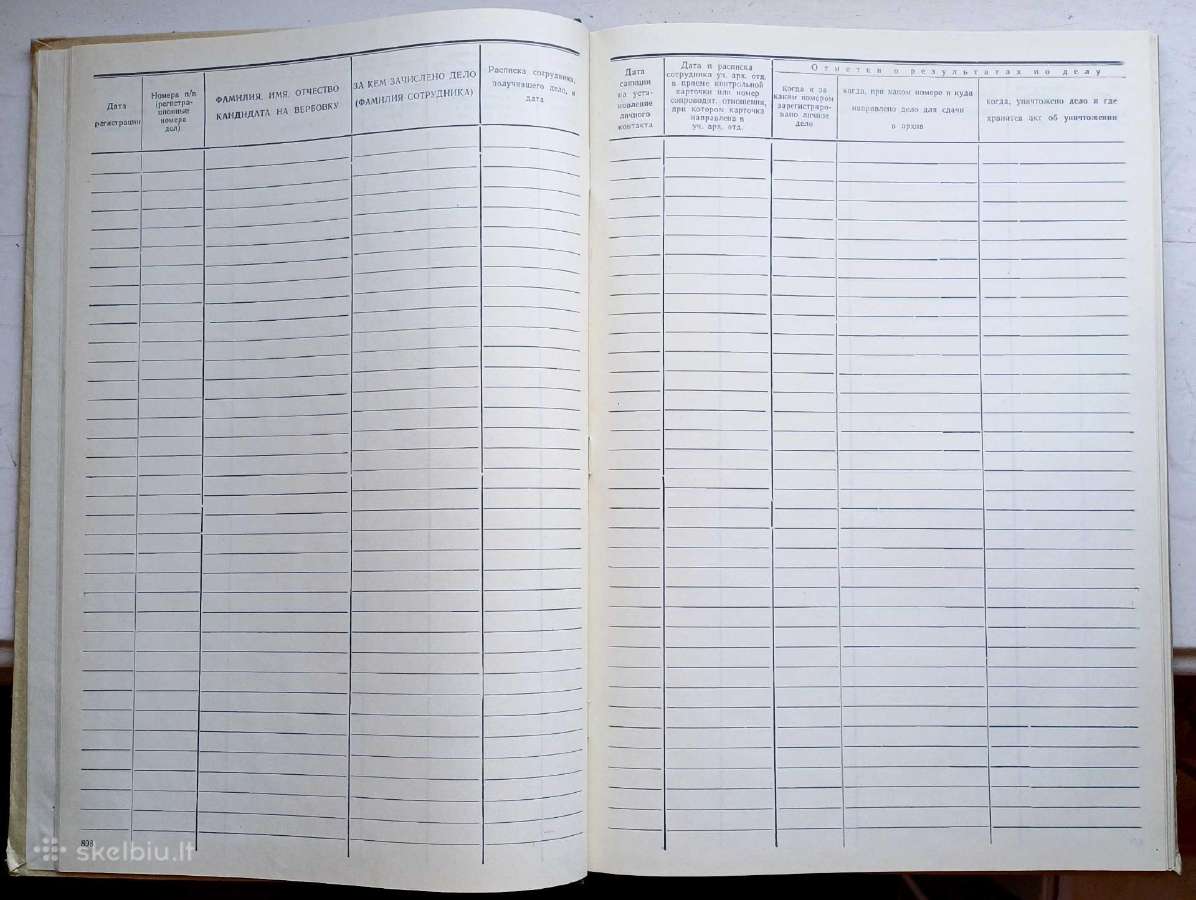 Дата
регистрации
Номера п/п
(регистра-
ционные
номера
дел)
ФАМИЛИЯ, ИМЯ, ОТЧЕСТВО
КАНДИДАТА НА ВЕРБОВКУ
ЗА КЕМ ЗАЧИСЛЕНО ДЕЛО
(ФАМИЛИЯ СОТРУДНИКА)
Расписка сотрудника,
получившего дело, и
дата
Дата
санкции
на уста-
новление
личного
контакта
Дата и расписка
сотрудника уч. арх. отд.
в приеме контрольной
карточки или номер
сопроводит. отношения,
при котором карточка
направлена в
уч. арх. отд.
Отметка о результатах по делу
когда и за
каким номером
зарегистриро-
вано личное
дело
когда, при каком номере и куда
направлено дело для сдачи
в архив
когда, уничтожено дело и где
хранится акт об уничтожении
898
skelbiu.lt